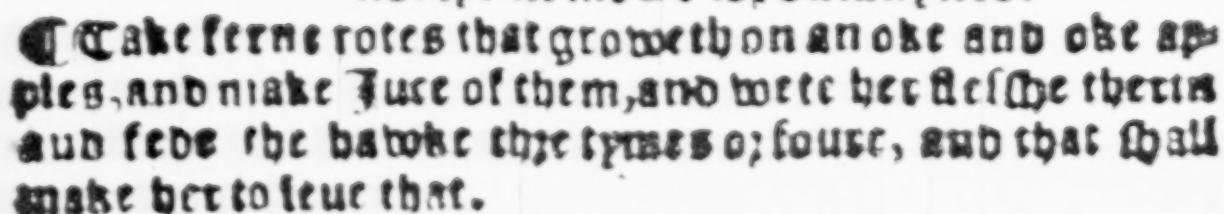 ¶ Take ferne rotes that groweth on an oke and oke ap-
ples, and make Juce of them, and wete her flesshe therin
and fede the hawke thre tymes or foure, and that shall
make her to leue that.